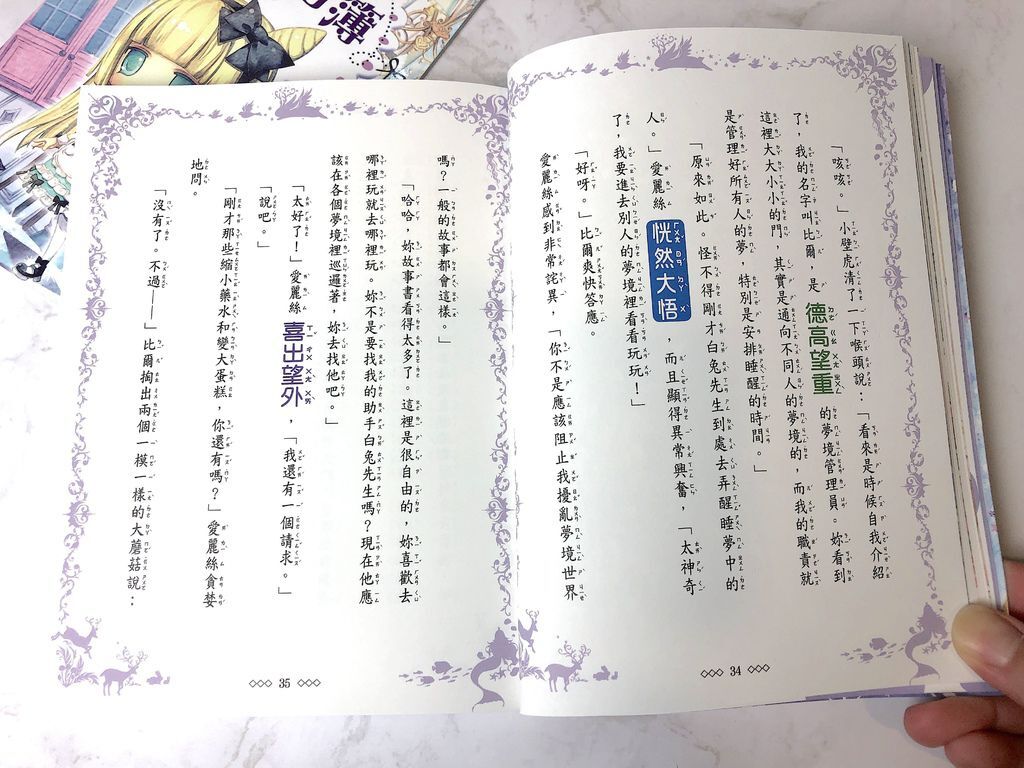 簿
「咳咳。」小壁虎清了一下喉頭說：「看來是時候自我介紹
了，我的名字叫比爾，是 德高望重 的夢境管理員。妳看到
這裡大大小小的門，其實是通向不同人的夢境的，而我的職責就
是管理好所有人的夢，特別是安排睡醒的時間。」
「原來如此。怪不得剛才白兔先生到處去弄醒睡夢中的
人。」愛麗絲 恍然大悟 ，而且顯得異常興奮，「太神奇
了，我要進去別人的夢境裡看看玩玩！」
「好呀。」比爾爽快答應。
愛麗絲感到非常詫異，「你不是應該阻止我擾亂夢境世界
34
嗎？一般的故事都會這樣。」
「哈哈，妳故事書看得太多了。這裡是很自由的，妳喜歡去
哪裡玩就去哪裡玩。妳不是要找我的助手白兔先生嗎？現在他應
該在各個夢境裡巡邏著，妳去找他吧。」
「太好了！」愛麗絲 喜出望外 ，「我還有一個請求。」
「說吧。」
「剛才那些縮小藥水和變大蛋糕，你還有嗎？」愛麗絲貪婪
地問。
「沒有了。不過——」比爾掏出兩個一模一樣的大蘑菇說：
35